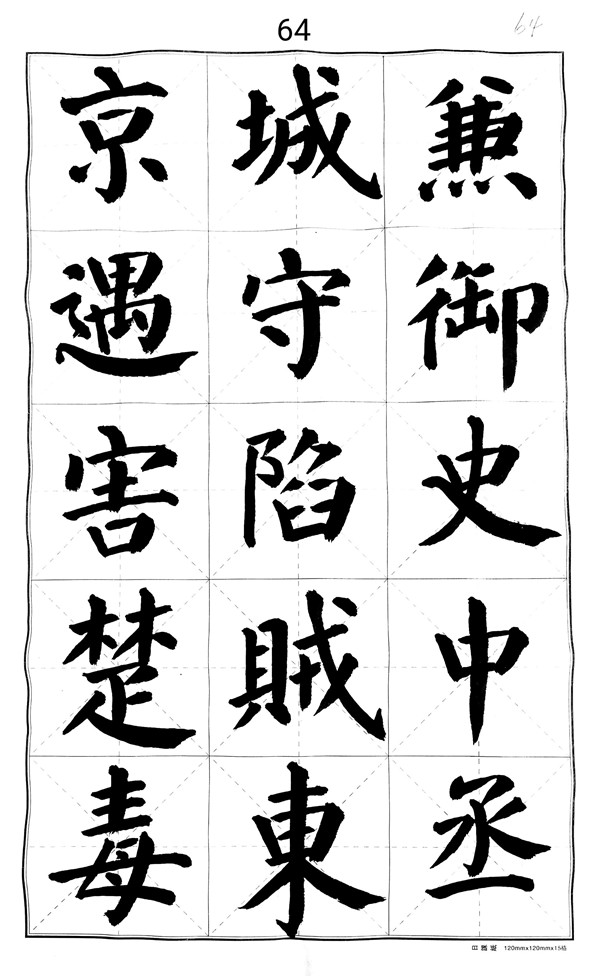 64
64
兼御史中丞
城守陷賊東
京遇害楚毒
120mmx120mmx15格